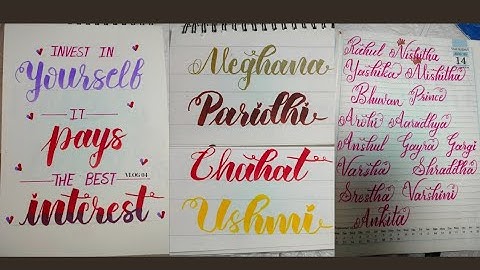 INVEST IN
Yourself
IT
pays
THE BEST
VLOG 04
interest
Meghana
Paridhi
Chahat
Ushmi
14
Rahul Nishitha
Yashika Mishitha
Bhuvan Prince
Arohi Aaradhya
Anshul Gayra Gargi
Varsha Shraddha
Srestha Varshini
Ankita